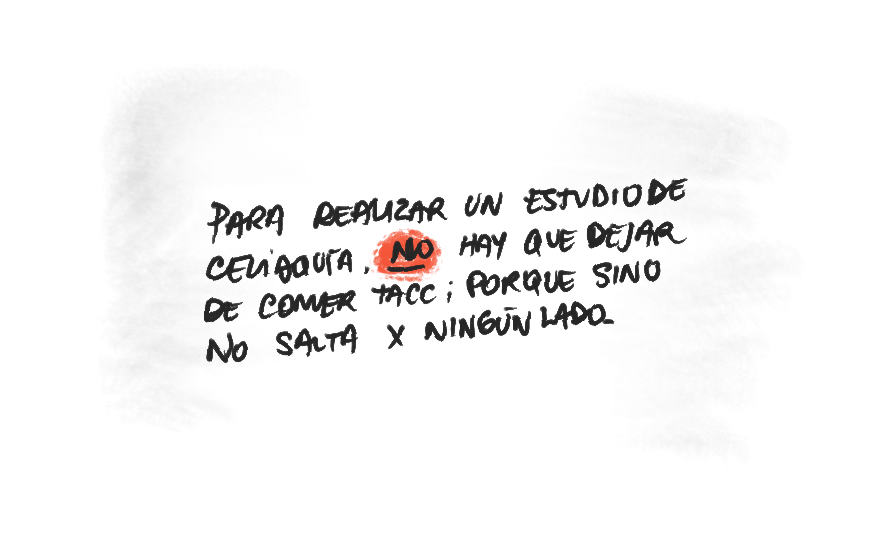 PARA REALIZAR UN ESTUDIO DE
CELIAQUÍA, NO HAY QUE DEJAR
DE COMER TACC; PORQUE SINO
NO SALTA X NINGÚN LADO.